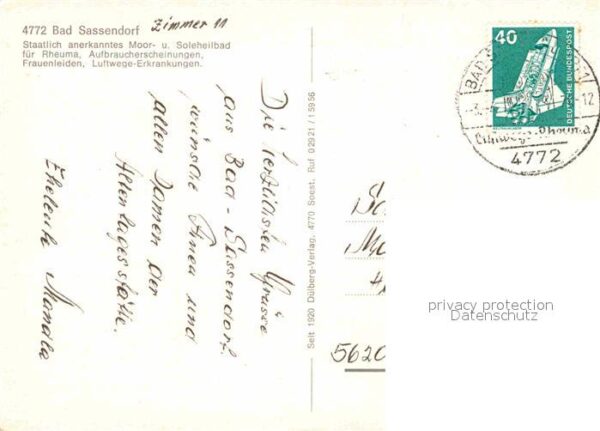 4772 Bad Sassendorf Zimmer 11
Staatlich anerkanntes Moor- u. Soleheilbad
für Rheuma, Aufbraucherscheinungen,
Frauenleiden, Luftwege-Erkrankungen.
Die herzlichsten Grüsse
aus Bad-Sassendorf.
wünsche Ihnen und
allen Damen der
Altentagesstätte.
Eheleute
Seit 1920 Dülberg-Verlag, 4770 Soest. Ruf 02921/15956
40
DEUTSCHE BUNDESPOST
BAD
-12
Rheuma
4772
5620
privacy protection
Datenschutz